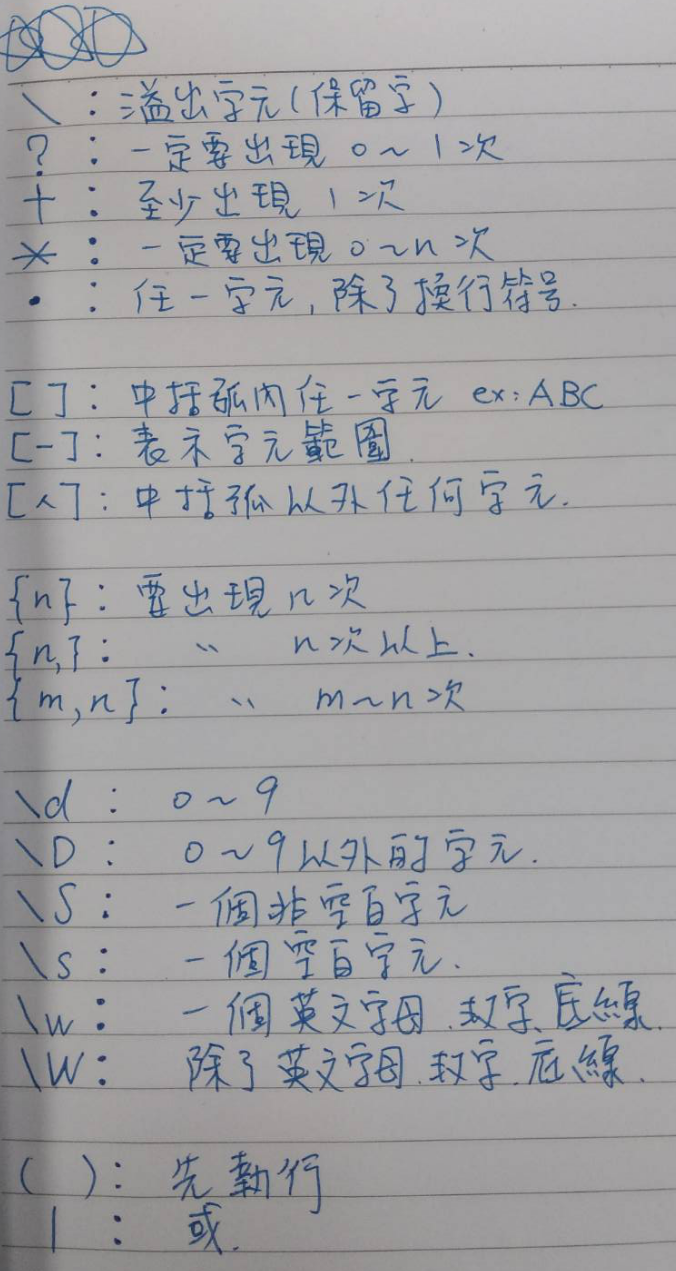 \ : 溢出字元(保留字)
? : 一定要出現 0~1次
+ : 至少出現 1次
* : 一定要出現 0~n次
. : 任一字元, 除了換行符号.
[ ] : 中括弧内任一字元 ex: ABC
[-] : 表示字元範圍.
[^] : 中括弧以外任何字元.
{n} : 要出現 n次
{n,} : 〃 n次以上.
{m,n} : 〃 m~n次
\d : 0~9
\D : 0~9以外的字元.
\S : 一個非空白字元
\s : 一個空白字元.
\w : 一個英文字母.数字.底線.
\W : 除了英文字母.数字.底線.
( ) : 先執行
| : 或.